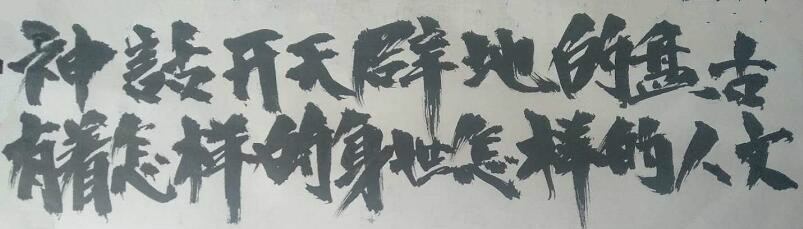 神話开天辟地的盘古
有着怎样的身世怎样的人文